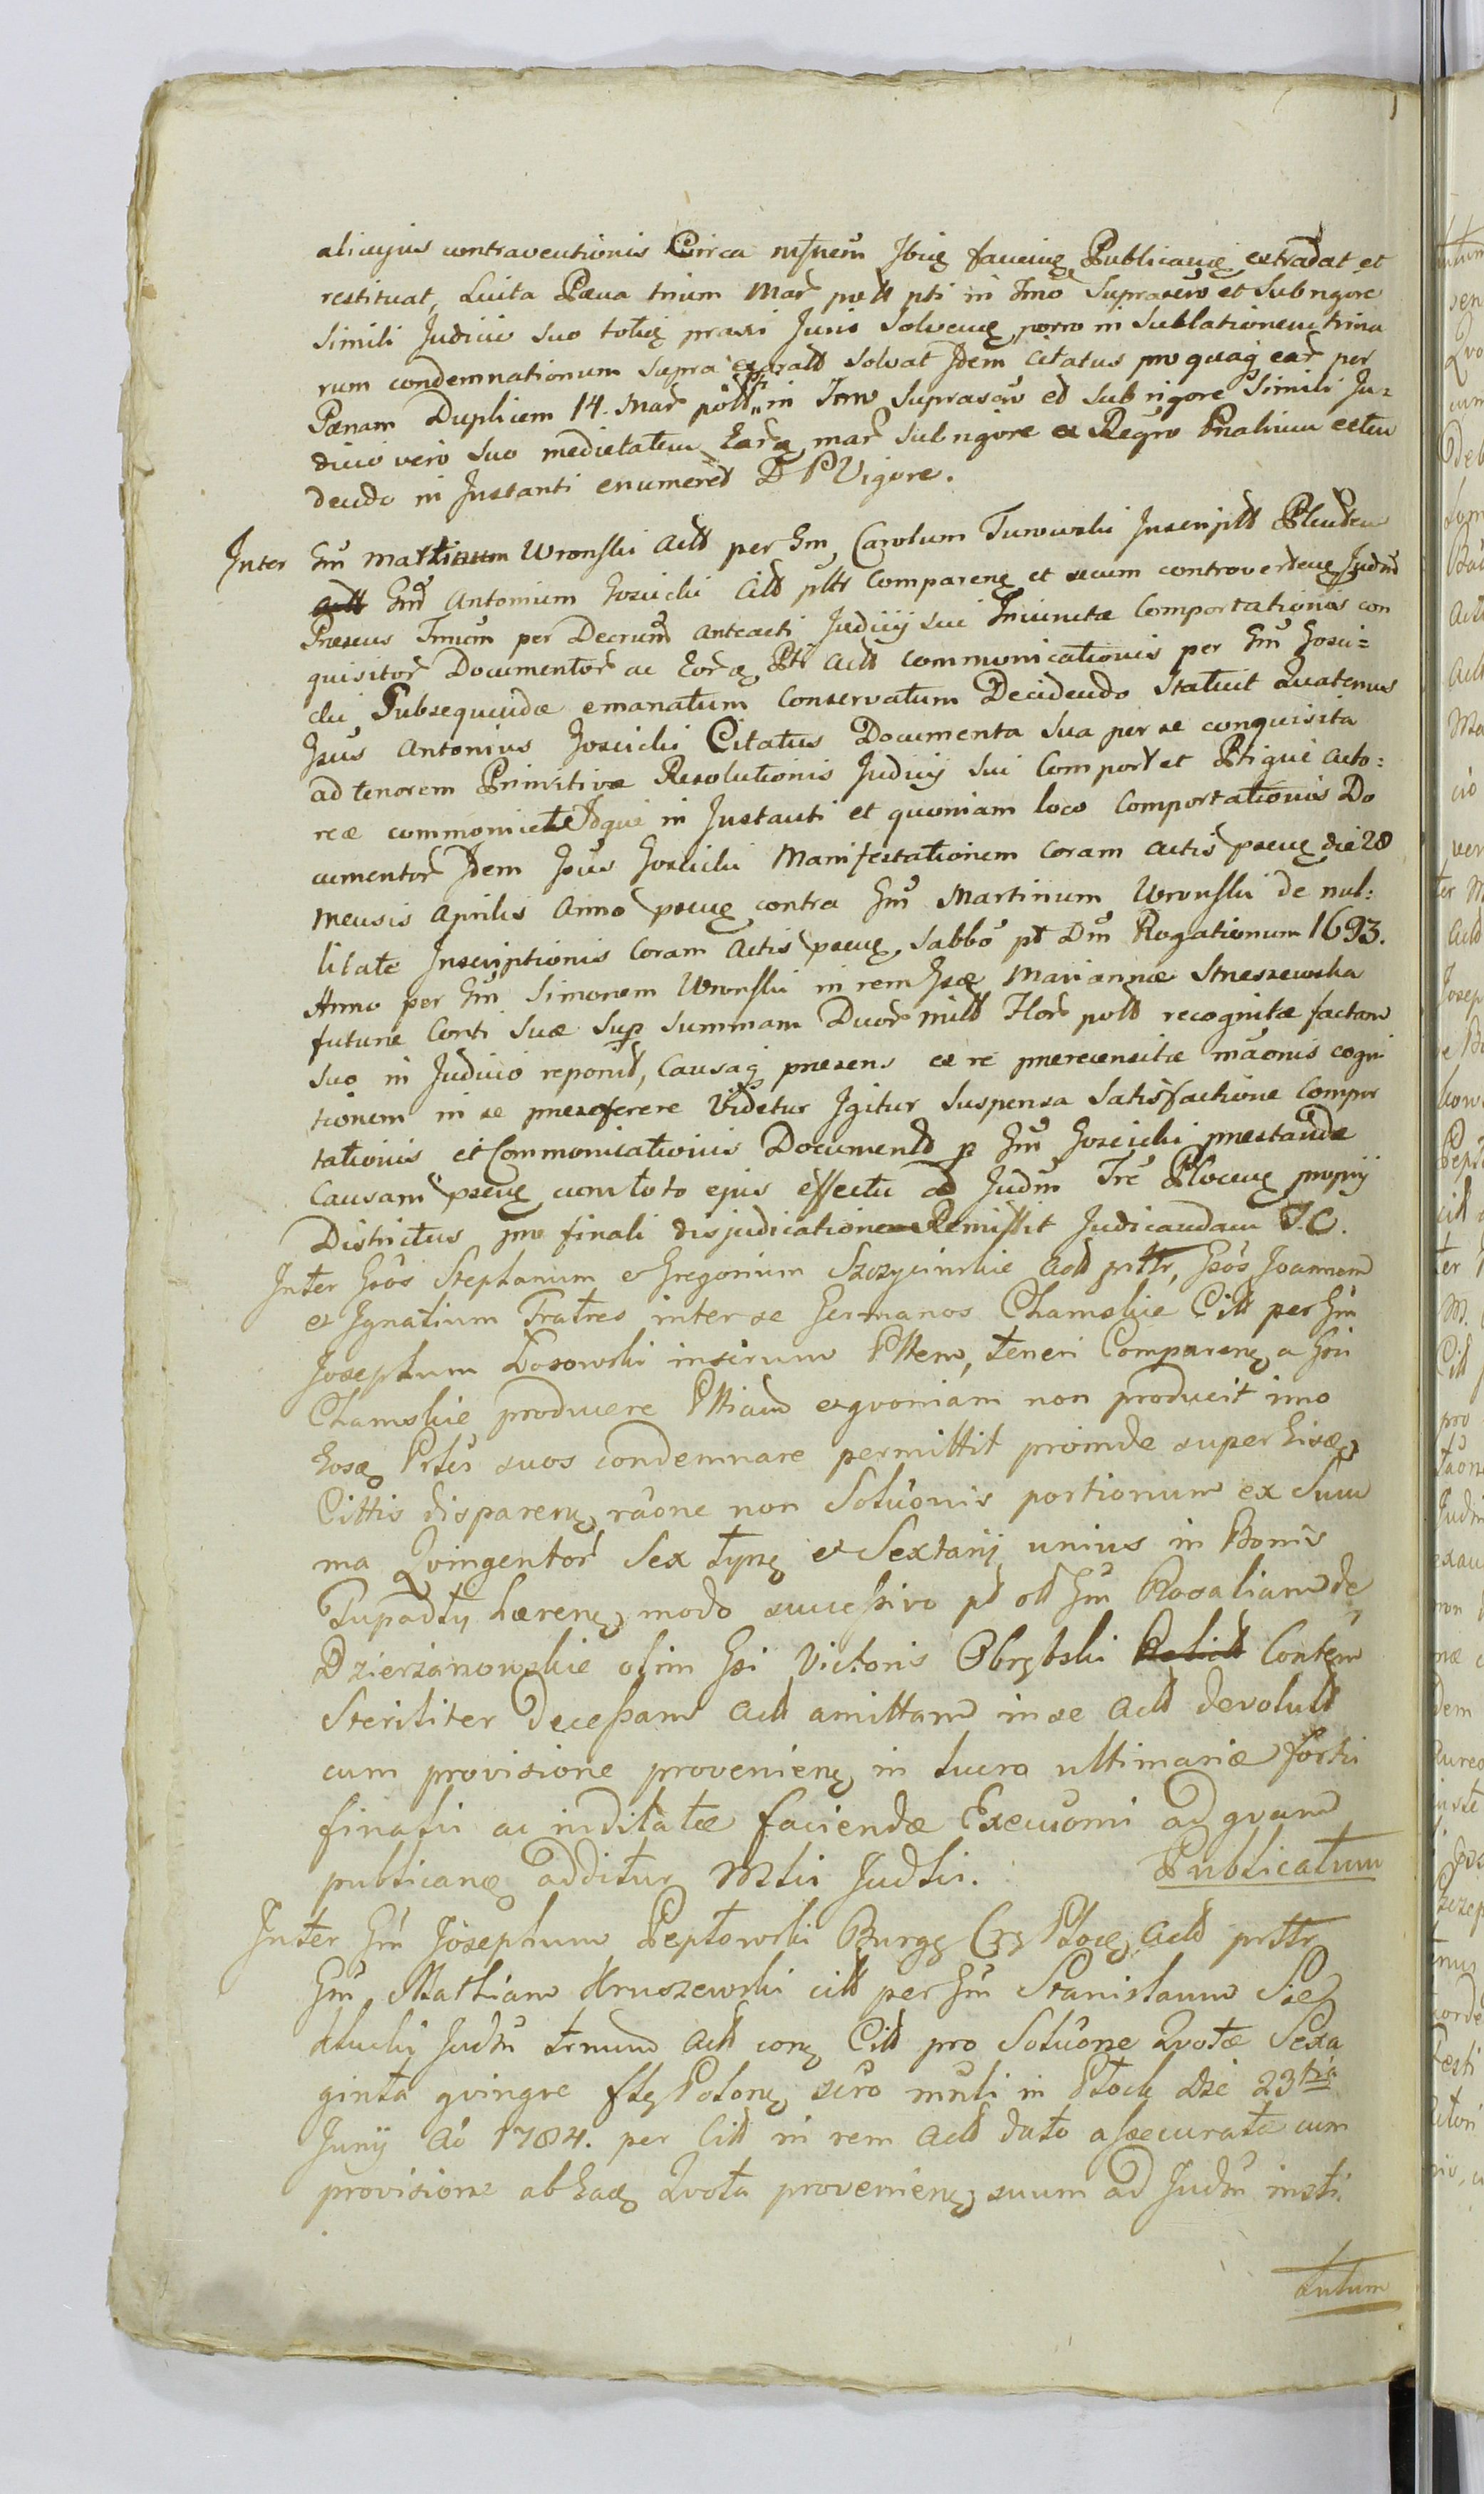 alicujus contraventionis Circa Ibiq faucing Publicang extradat et
restituat, Luita Pæna trium Mar poll pti in Tmo Suprascro et Sub rigore
Simili Judicio Suo totiq praxi Juris Solveng, porro in Sublationem trina
rum condemnationum Supra exaratt Solvat Idem Citatus pro quaq ear per
Pænam Duplicem 14. Mar poll in Tmo Suprascro ed Sub rigore Simili Ju=
dicio vero Suo medietatem Earq mar Sub rigore ex Regro Pnalium exten
dendo in Instanti enumered D P Vigore.
Inter Gm Martinum Wronski Actt per Gm Carolum Turowski Inscriptt
Gm Antonium Gosicki Citt pltt Compareng et secum controverteng Judm
Præsens Tmum per Decrum anteacti Judicij sui Iniunctæ Comportationis con
quisitor Documentor ac Eorq Pti Actt communicationis per Gm Gosic=
cki Subsequendæ emanatum Conservatum Decidendo Statuit Quatenus
Gsus Antonius Gosicki Citatus Documenta Sua per se conquisita
ad tenorem Primitivæ Resolutionis Judicij Sui Comportet Ptique Acto=
reæ communicet Idque in Instanti et quoniam loco Comportationis Do
cumentor Idem Gsus Gosicki Manifestationem Coram actis pseng die 28
Mensis Aprilis Anno pseng contra Gm Martinum Wronski de nul=
litate Inscriptionis Coram Actis pseng, Sabbo pt Dm Rogationum 1693.
Anno per Gm Simonem Wronski in rem Gsæ Mariannæ Streszewska
futuræ Conti Suæ Sup Summam Duor mill Flor poll recognitæ factam
Suo in Judicio reponit, Causaq præsens ex re prærecensitæ maonis cogni
tionem in se præseferere Videtur Igitur Suspensa Satisfactione Compor
tationis et Communicationis Documentt p Gm Gosicki præstanda
Causam pseng cum toto ejus effectu ad Judm Tre Ploceng proprij
Districtus pro finali disjudicatione Remissit Judicandam T. C.
Inter Gsos Stephanum et Gregorium Szczycinskie Actt prttr, Gsos Joannem
et Ignatium Fratres inter se Germanos Chamskie Citt per Gm
Josephum Losowski Pttem, teneri Compareng a Gsi
Chamskie producere Pttiam et quoniam non producit imo
Eosq Prlis suos condemnare permittit proinde super Eisq
Cittis dispareng, raone non Soluonis portionum ex Sum
ma Qvingentor Sex typg et Sextarij unius in Bonis
Tupadly hæreng, modo successivo pt ott Gm Rosaliam de
Dzierzanowskie olim Gsi Victoris Obrębski Contem
Steriliter decessam Actt amittam in se Actt devolutt
cum provisione provenieng in lucro ultimariæ forti
finalii ac inditatæ faciendæ Execuoni ad quam
publicang additur Mtlis Judtis. Publicatum
Inter Gm Josephum Peplowski Burgg Crg Plocg Actt prttr
Gm Mathiam Hruszewski citt per Gm Stanislaum Sie
dlucki Judm trmum Actt corg Citt pro Soluone Qvotæ Sexa
ginta qvinqve flg Polong, scro mnli in Plock die 23tia
Junij Ao 1784. per Citt in rem Actt dato assecuratæ cum
provisione ab Eaq Qvota provenieng, suum ad Judm insti
tutum